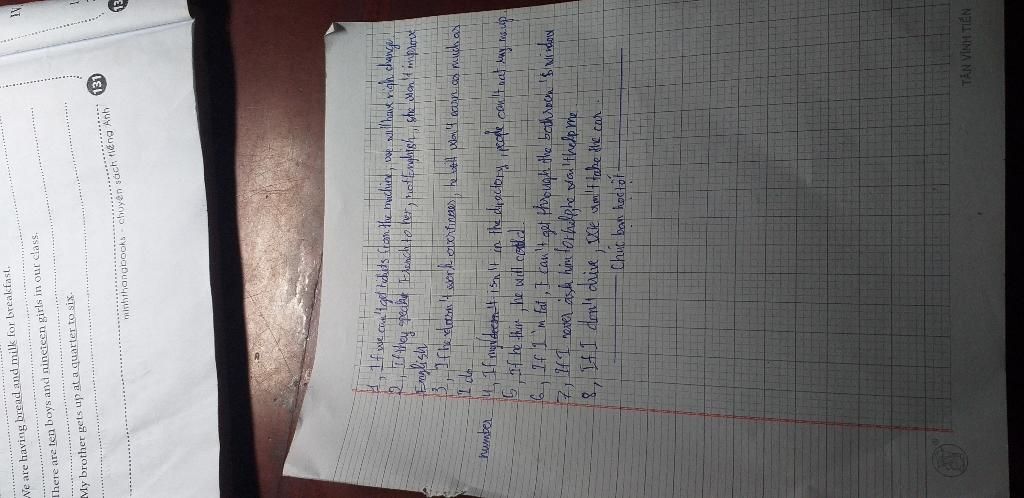 We are having bread and milk for breakfast.
There are ten boys and nineteen girls in our class.
My brother gets up at a quarter to six.
131
minhthangbooks - chuyên sách tiếng Anh
1, If we can't get tickets from the machine, we will have right change
2, If they speake French to her, not English, she won't improve
English
3, If he doesn't work overtimes, he will won't earn as much as
I do
4, If my number isn't in the directory, people can't
5, If he thin, he will cold
6, If I'm fat, I can't get through the bathroom's window
7, If I never ask him for help he won't help me
8, If I don't drive, won't take the car.
Chúc bạn học tốt
TÂN VĨNH TIẾN